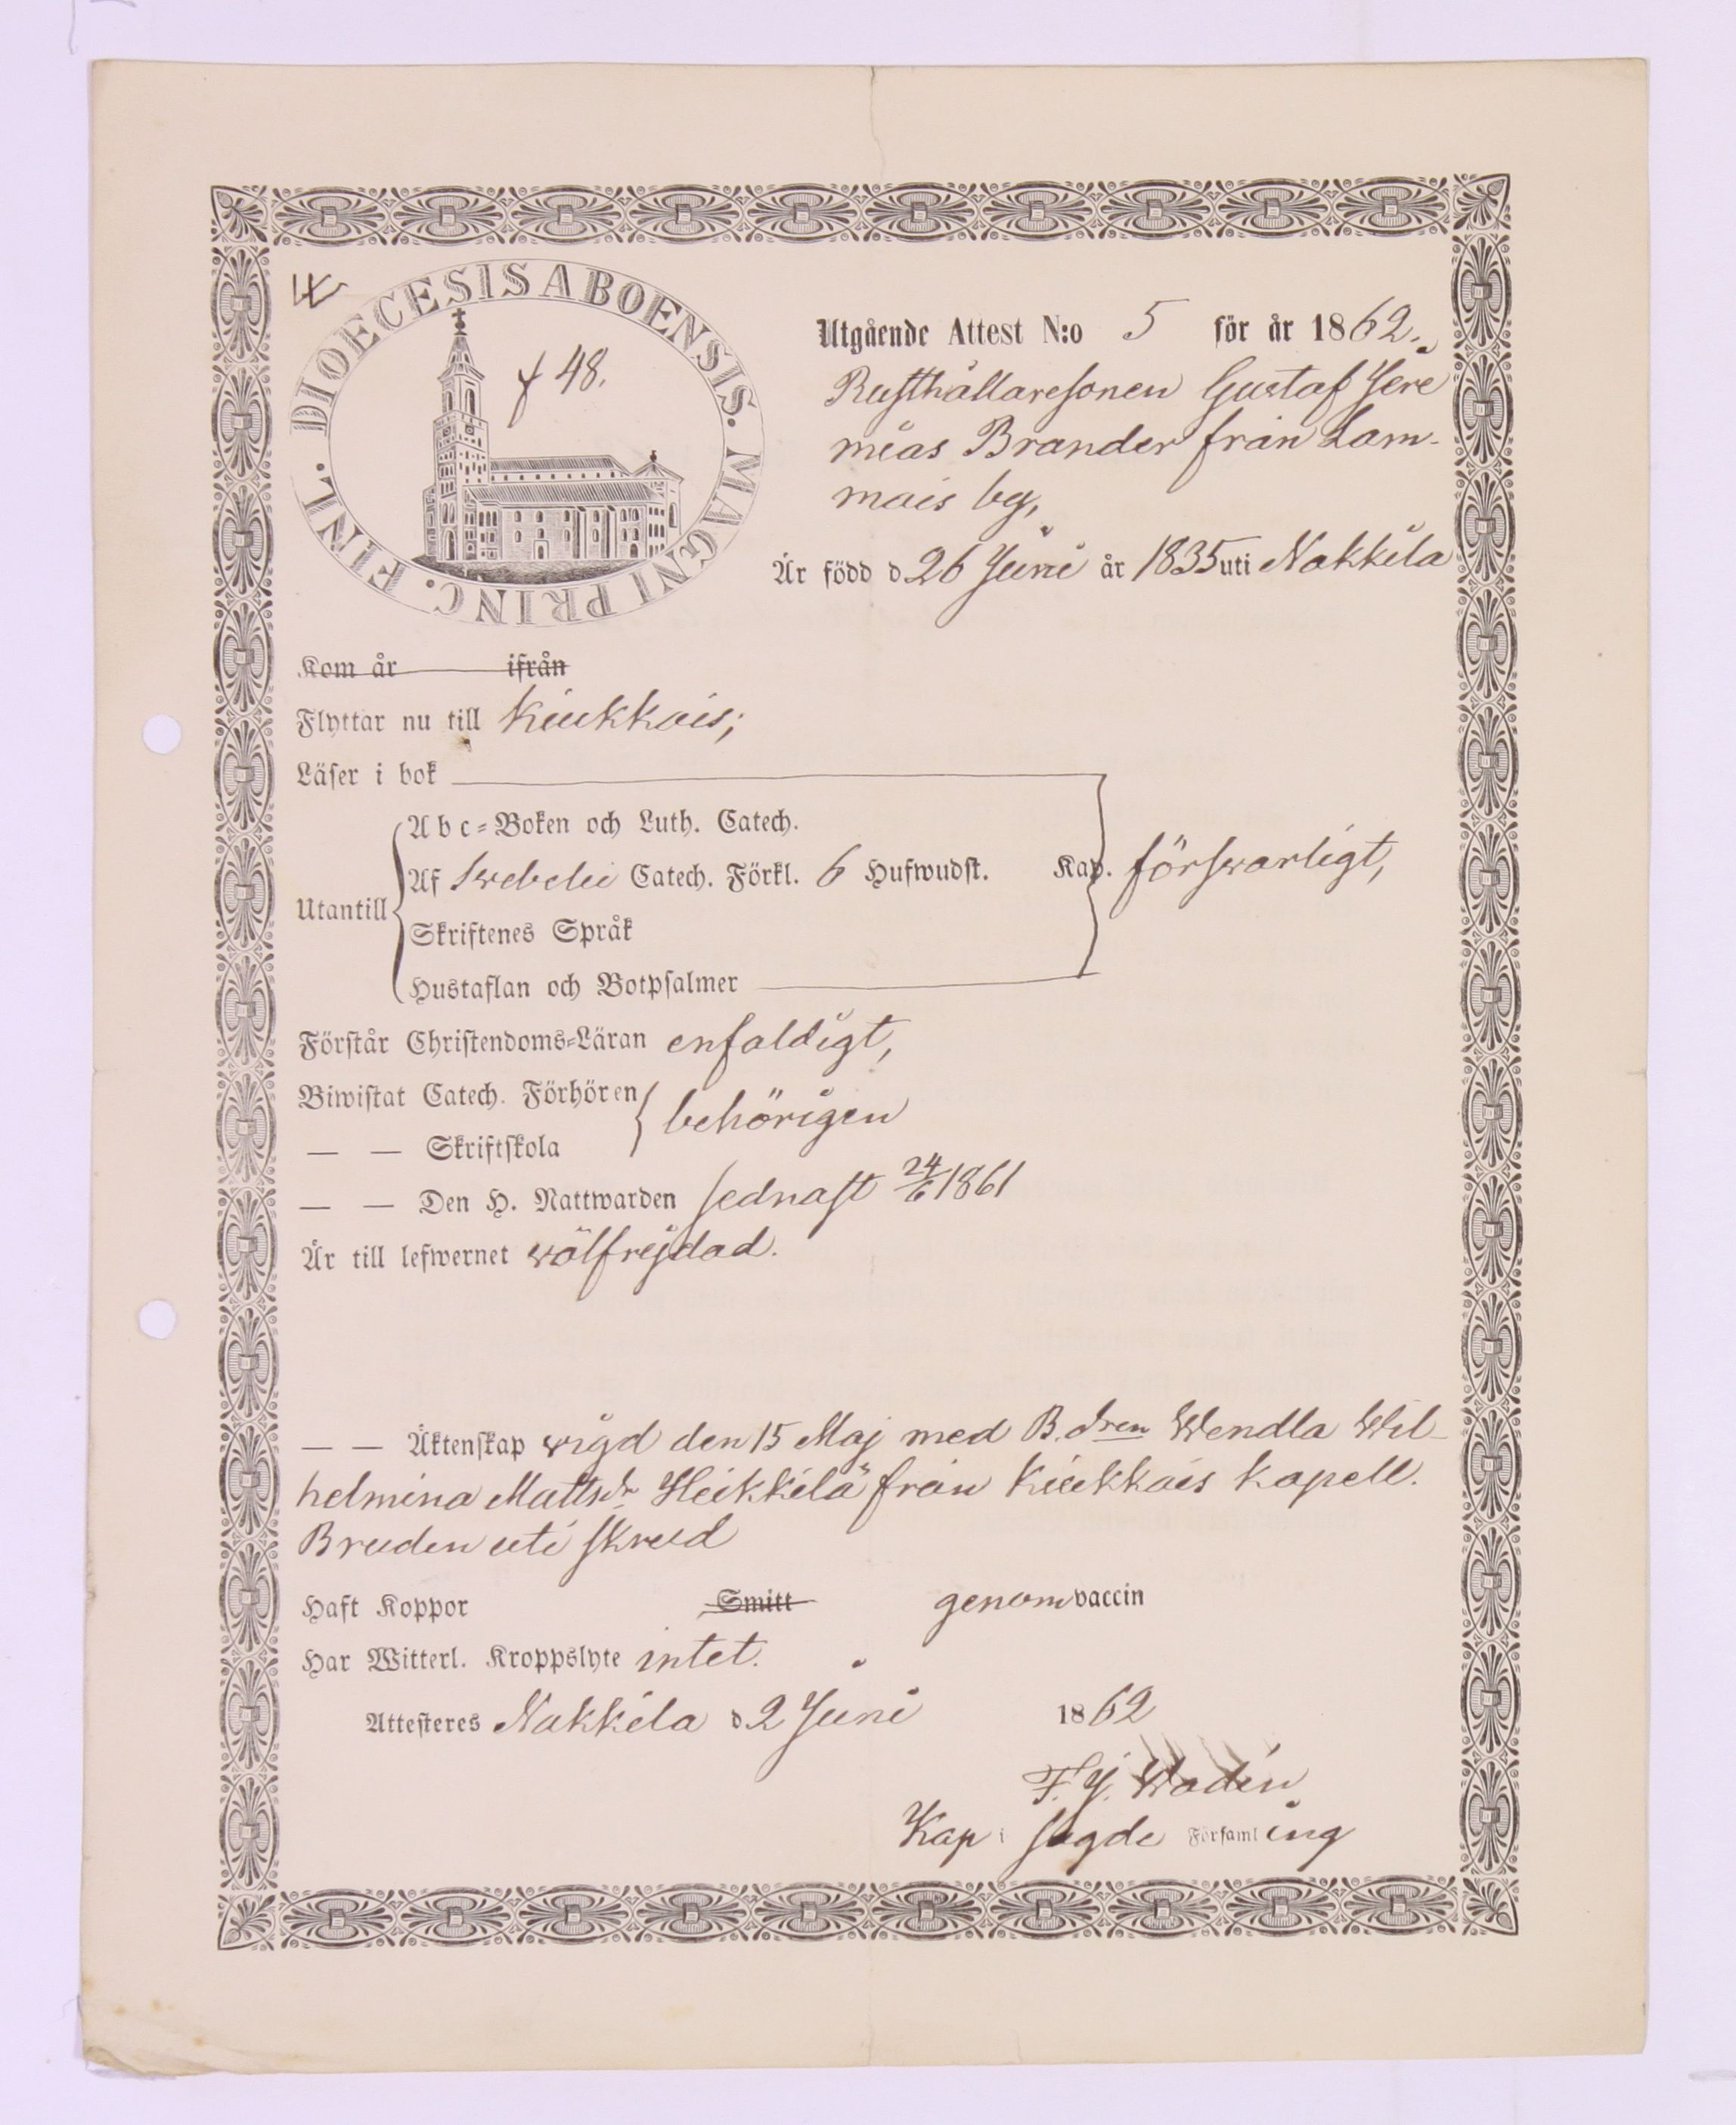 DIOECESIS ABOENSIS. MAGNI PRINC. FINL.
f 48.
Utgående Attest N:o 5 för år 1862.
Rusthållaresonen Gustaf Jere
mias Brander från Lam-
mais by,
Är född d 26 Juni år 1835 uti Nakkila
Kom år ifrån
Flyttar nu till Kiukkais;
Läser i bok
Abc-Boken och Luth. Catech.
Af Swebelii Catech. Förkl. 6 Hufwudst. Kap. förswarligt,
Utantill
Skriftenes Språk
Hustaflan och Botpsalmer
Förstår Christendoms-Läran enfaldigt,
Biwistat Catech. Förhören
behörigen
— — Skriftskola
— — Den H. Nattwarden sednast 24/6 1861
Är till lefwernet wälfrejdad.
— — Äktenskap wigd den 15 Maj med B.dren Wendla Wil-
helmina Mattsdr Heikkilä från Kiukkais Kapell.
Bruden uti skrud
Haft Koppor Smitt genom vaccin
Har Witterl. Kroppslyte intet.
Attesteres Nakkila d 2 Juni 1862
F. J. Wadén
Kap i sagde Församling